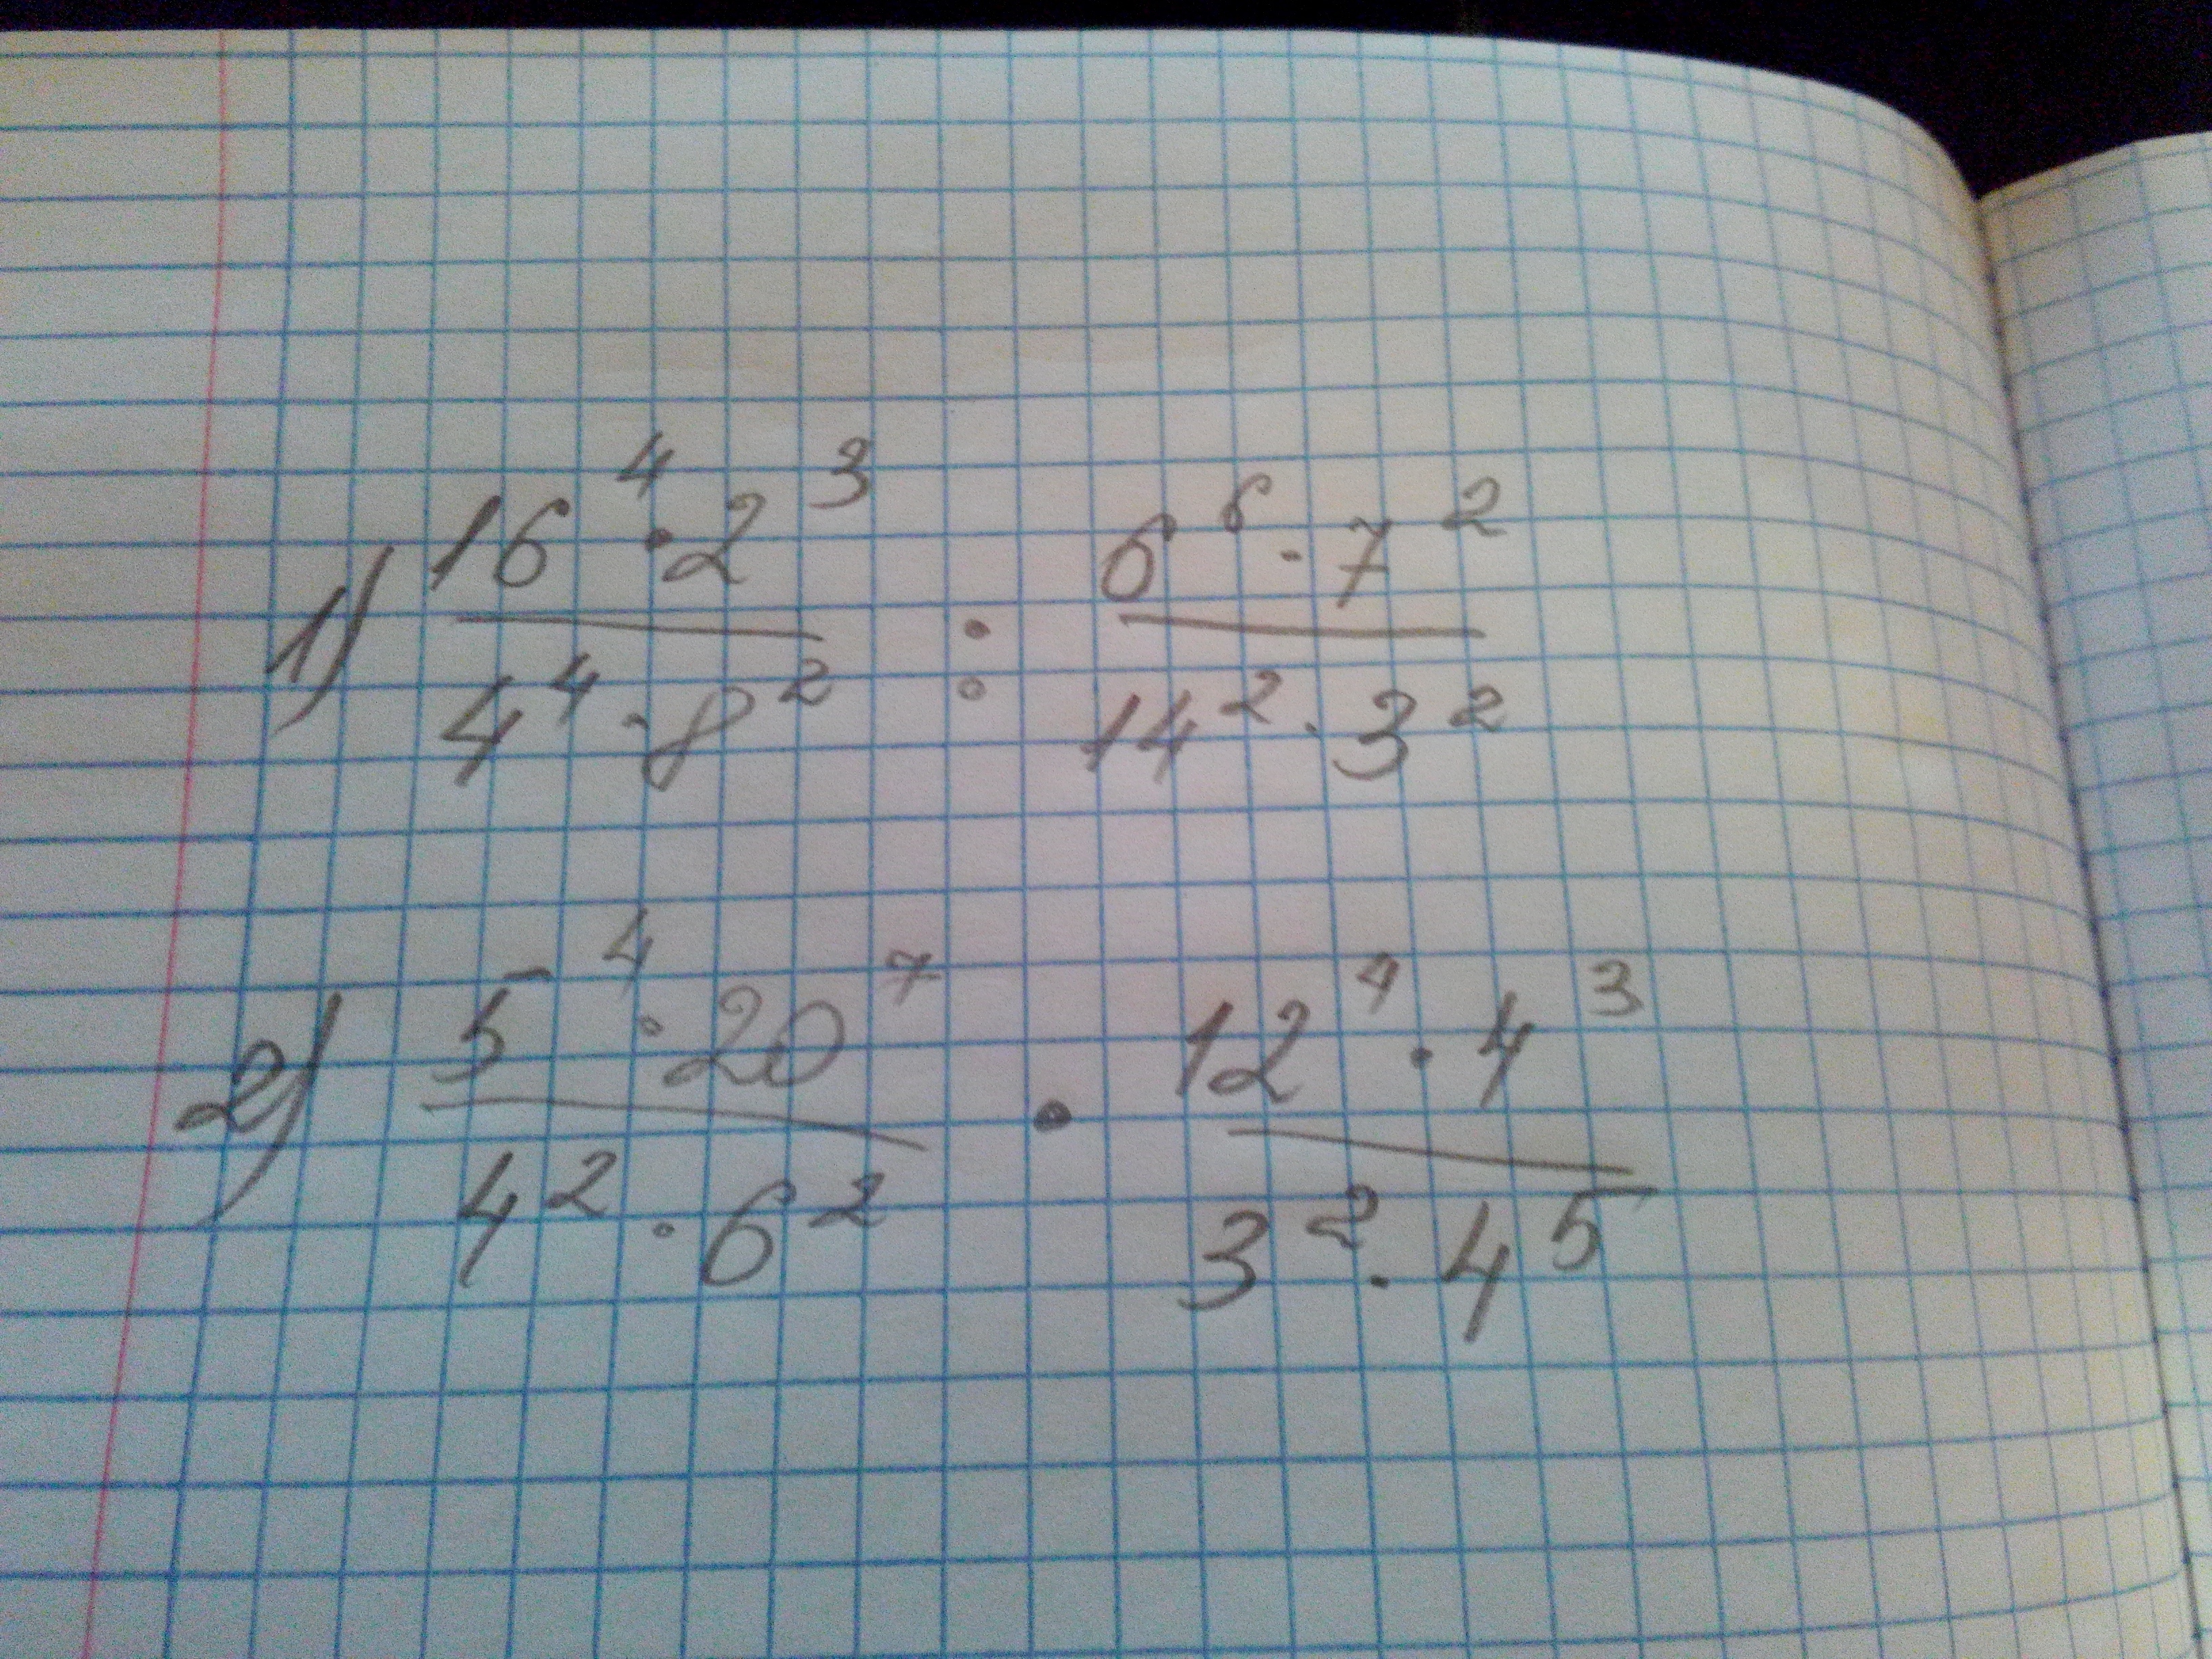 1) 16⁴ · 2³ / 4⁴ · 8² : 6⁶ · 7² / 14² · 3²
2) 5⁴ · 20⁷ / 4² · 6² · 12⁴ · 4³ / 3² · 4⁵